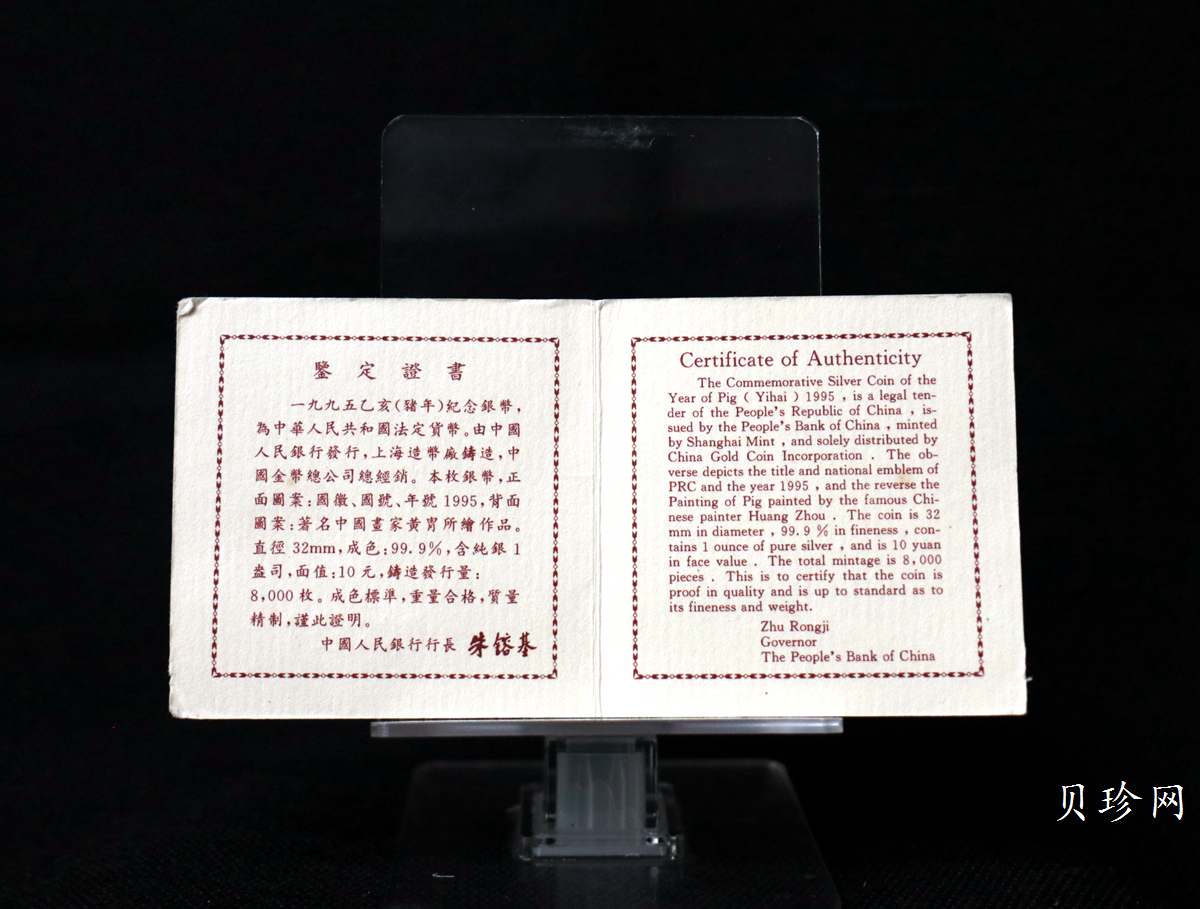 鑒定證書
一九九五乙亥(豬年)紀念銀幣,
為中華人民共和國法定貨幣。由中國
人民銀行發行,上海造幣廠鑄造,中
國金幣總公司總經銷。本枚銀幣,正
面圖案:國徽、國號、年號1995,背面
圖案:著名中國畫家黃胄所繪作品。
直徑32mm,成色:99.9%,含純銀1
盎司,面值:10元,鑄造發行量:
8,000枚。成色標準,重量合格,質量
精制,謹此證明。
中國人民銀行行長 朱鎔基
Certificate of Authenticity
The Commemorative Silver Coin of the
Year of Pig ( Yihai ) 1995 , is a legal ten-
der of the People's Republic of China , is-
sued by the People's Bank of China , minted
by Shanghai Mint , and solely distributed by
China Gold Coin Incorporation . The ob-
verse depicts the title and national emblem of
PRC and the year 1995 , and the reverse the
Painting of Pig painted by the famous Chi-
nese painter Huang Zhou . The coin is 32
mm in diameter , 99.9 % in fineness , con-
tains 1 ounce of pure silver , and is 10 yuan
in face value . The total mintage is 8,000
pieces . This is to certify that the coin is
proof in quality and is up to standard as to
its fineness and weight.
Zhu Rongji
Governor
The People's Bank of China
贝珍网